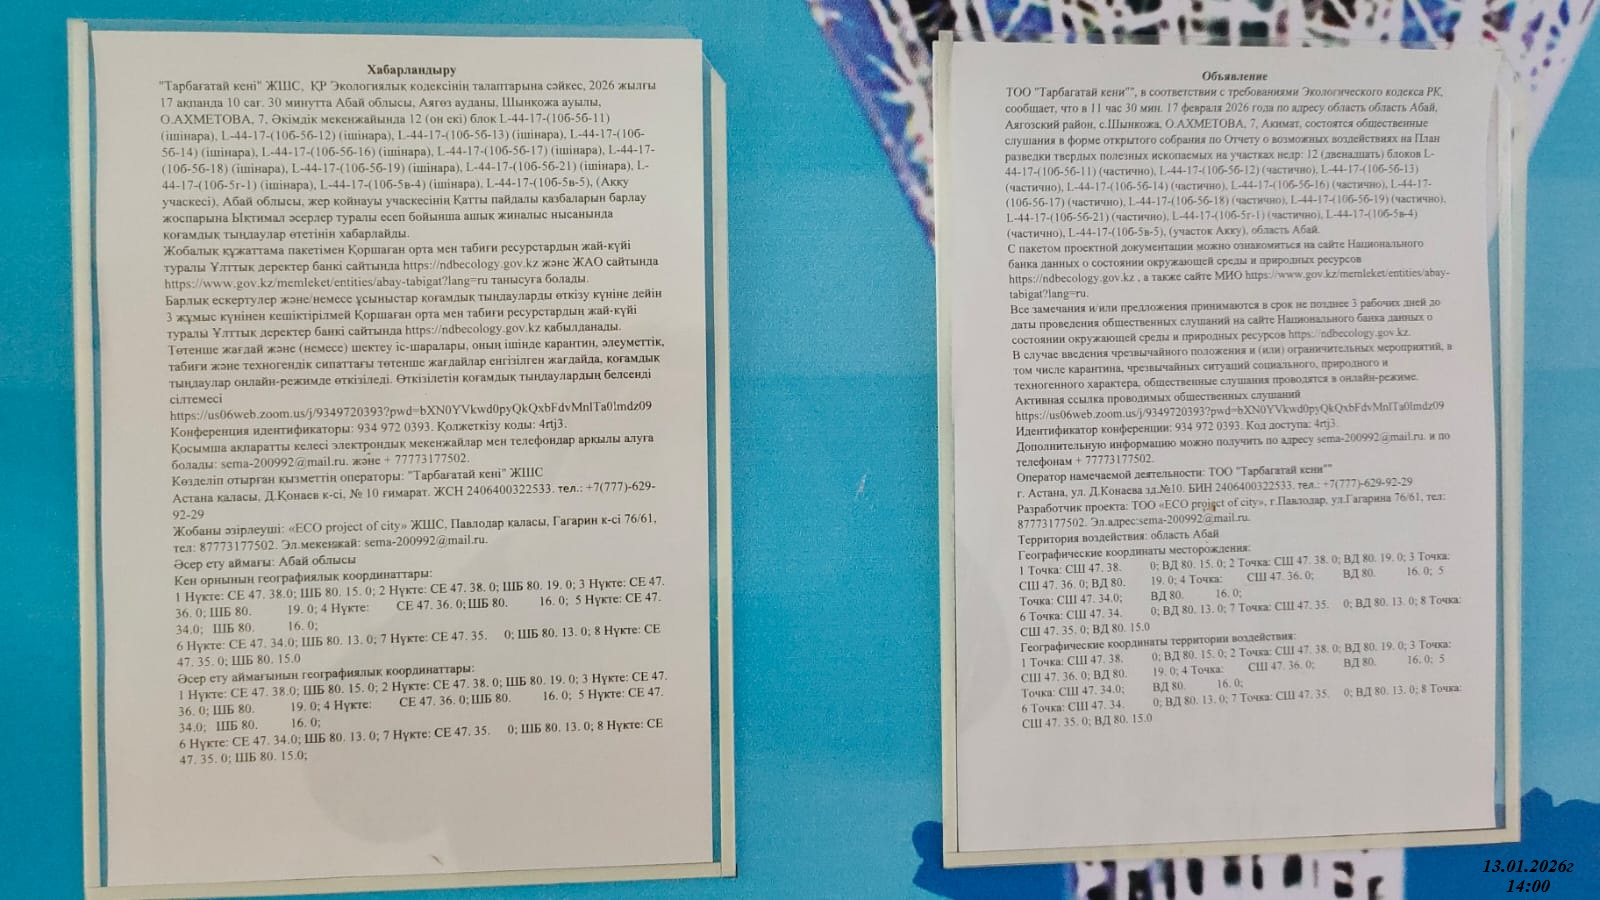 Хабарландыру
"Тарбағатай кені" ЖШС, ҚР Экологиялық кодексінің талаптарына сәйкес, 2026 жылғы
17 ақпанда 10 сағ. 30 минутта Абай облысы, Аягөз ауданы, Шынқожа ауылы,
О.АХМЕТОВА, 7, Әкімдік мекенжайында 12 (он екі) блок L-44-17-(10б-5б-11)
(ішінара), L-44-17-(10б-5б-12) (ішінара), L-44-17-(10б-5б-13) (ішінара), L-44-17-(10б-
5б-14) (ішінара), L-44-17-(10б-5б-16) (ішінара), L-44-17-(10б-5б-17) (ішінара), L-44-17-
(10б-5б-18) (ішінара), L-44-17-(10б-5б-19) (ішінара), L-44-17-(10б-5б-21) (ішінара), L-
44-17-(10б-5г-1) (ішінара), L-44-17-(10б-5в-4) (ішінара), L-44-17-(10б-5в-5), (Аққу
учаскесі), Абай облысы, жер қойнауы учаскесінің Қатты пайдалы қазбаларын барлау
жоспарына Ықтимал әсерлер туралы есеп бойынша ашық жиналыс нысанында
қоғамдық тыңдаулар өтетінін хабарлайды.
Жобалық құжаттама пакетімен Қоршаған орта мен табиғи ресурстардың жай-күйі
туралы Ұлттық деректер банкі сайтында https://ndbecology.gov.kz және ЖАО сайтында
https://www.gov.kz/memleket/entities/abay-tabigat?lang=ru танысуға болады.
Барлық ескертулер және/немесе ұсыныстар қоғамдық тыңдауларды өткізу күніне дейін
3 жұмыс күнінен кешіктірілмей Қоршаған орта мен табиғи ресурстардың жай-күйі
туралы Ұлттық деректер банкі сайтында https://ndbecology.gov.kz қабылданады.
Төтенше жағдай және (немесе) шектеу іс-шаралары, оның ішінде карантин, әлеуметтік,
табиғи және техногендік сипаттағы төтенше жағдайлар енгізілген жағдайда, қоғамдық
тыңдаулар онлайн-режимде өткізіледі. Өткізілетін қоғамдық тыңдаулардың белсенді
сілтемесі
https://us06web.zoom.us/j/9349720393?pwd=bXN0YVkwd0pyQkQxbFdvMnlTa0lmdz09
Конференция идентификаторы: 934 972 0393. Қолжеткізу коды: 4rtj3.
Қосымша ақпаратты келесі электрондық мекенжайлар мен телефондар арқылы алуға
болады: sema-200992@mail.ru. және + 77773177502.
Көзделіп отырған қызметтің операторы: "Тарбағатай кені" ЖШС
Астана қаласы, Д.Қонаев к-сі, № 10 ғимарат. ЖСН 2406400322533. тел.: +7(777)-629-
92-29
Жобаны әзірлеуші: «ECO project of city» ЖШС, Павлодар қаласы, Гагарин к-сі 76/61,
тел: 87773177502. Эл.мекенжай: sema-200992@mail.ru.
Әсер ету аймағы: Абай облысы
Кен орнының географиялық координаттары:
1 Нүкте: СЕ 47. 38.0; ШБ 80. 15. 0; 2 Нүкте: СЕ 47. 38. 0; ШБ 80. 19. 0; 3 Нүкте: СЕ 47.
36. 0; ШБ 80. 19. 0; 4 Нүкте: СЕ 47. 36. 0; ШБ 80. 16. 0; 5 Нүкте: СЕ 47.
34.0; ШБ 80. 16. 0;
6 Нүкте: СЕ 47. 34.0; ШБ 80. 13. 0; 7 Нүкте: СЕ 47. 35. 0; ШБ 80. 13. 0; 8 Нүкте: СЕ
47. 35. 0; ШБ 80. 15.0
Әсер ету аймағының географиялық координаттары:
1 Нүкте: СЕ 47. 38.0; ШБ 80. 15. 0; 2 Нүкте: СЕ 47. 38. 0; ШБ 80. 19. 0; 3 Нүкте: СЕ 47.
36. 0; ШБ 80. 19. 0; 4 Нүкте: СЕ 47. 36. 0; ШБ 80. 16. 0; 5 Нүкте: СЕ 47.
34.0; ШБ 80. 16. 0;
6 Нүкте: СЕ 47. 34.0; ШБ 80. 13. 0; 7 Нүкте: СЕ 47. 35. 0; ШБ 80. 13. 0; 8 Нүкте: СЕ
47. 35. 0; ШБ 80. 15.0;
Объявление
ТОО "Тарбагатай кени"", в соответствии с требованиями Экологического кодекса РК,
сообщает, что в 11 час 30 мин. 17 февраля 2026 года по адресу область область Абай,
Аягозский район, с.Шынкожа, О.АХМЕТОВА, 7, Акимат, состоятся общественные
слушания в форме открытого собрания по Отчету о возможных воздействиях на План
разведки твердых полезных ископаемых на участках недр: 12 (двенадцать) блоков L-
44-17-(10б-5б-11) (частично), L-44-17-(10б-5б-12) (частично), L-44-17-(10б-5б-13)
(частично), L-44-17-(10б-5б-14) (частично), L-44-17-(10б-5б-16) (частично), L-44-17-
(10б-5б-17) (частично), L-44-17-(10б-5б-18) (частично), L-44-17-(10б-5б-19) (частично),
L-44-17-(10б-5б-21) (частично), L-44-17-(10б-5г-1) (частично), L-44-17-(10б-5в-4)
(частично), L-44-17-(10б-5в-5), (участок Акку), область Абай.
С пакетом проектной документации можно ознакомиться на сайте Национального
банка данных о состоянии окружающей среды и природных ресурсов
https://ndbecology.gov.kz , а также сайте МИО https://www.gov.kz/memleket/entities/abay-
tabigat?lang=ru.
Все замечания и/или предложения принимаются в срок не позднее 3 рабочих дней до
даты проведения общественных слушаний на сайте Национального банка данных о
состоянии окружающей среды и природных ресурсов https://ndbecology.gov.kz.
В случае введения чрезвычайного положения и (или) ограничительных мероприятий, в
том числе карантина, чрезвычайных ситуаций социального, природного и
техногенного характера, общественные слушания проводятся в онлайн-режиме.
Активная ссылка проводимых общественных слушаний
https://us06web.zoom.us/j/9349720393?pwd=bXN0YVkwd0pyQkQxbFdvMnlTa0lmdz09
Идентификатор конференции: 934 972 0393. Код доступа: 4rtj3.
Дополнительную информацию можно получить по адресу sema-200992@mail.ru. и по
телефонам + 77773177502.
Оператор намечаемой деятельности: ТОО "Тарбагатай кени""
г. Астана, ул. Д.Конаева зд.№10. БИН 2406400322533. тел.: +7(777)-629-92-29
Разработчик проекта: ТОО «ECO project of city», г.Павлодар, ул.Гагарина 76/61, тел:
87773177502. Эл.адрес:sema-200992@mail.ru.
Территория воздействия: область Абай
Географические координаты месторождения:
1 Точка: СШ 47. 38. 0; ВД 80. 15. 0; 2 Точка: СШ 47. 38. 0; ВД 80. 19. 0; 3 Точка:
СШ 47. 36. 0; ВД 80. 19. 0; 4 Точка: СШ 47. 36. 0; ВД 80. 16. 0; 5
Точка: СШ 47. 34.0; ВД 80. 16. 0;
6 Точка: СШ 47. 34. 0; ВД 80. 13. 0; 7 Точка: СШ 47. 35. 0; ВД 80. 13. 0; 8 Точка:
СШ 47. 35. 0; ВД 80. 15.0
Географические координаты территории воздействия:
1 Точка: СШ 47. 38. 0; ВД 80. 15. 0; 2 Точка: СШ 47. 38. 0; ВД 80. 19. 0; 3 Точка:
СШ 47. 36. 0; ВД 80. 19. 0; 4 Точка: СШ 47. 36. 0; ВД 80. 16. 0; 5
Точка: СШ 47. 34.0; ВД 80. 16. 0;
6 Точка: СШ 47. 34. 0; ВД 80. 13. 0; 7 Точка: СШ 47. 35. 0; ВД 80. 13. 0; 8 Точка:
СШ 47. 35. 0; ВД 80. 15.0
13.01.2026г
14:00